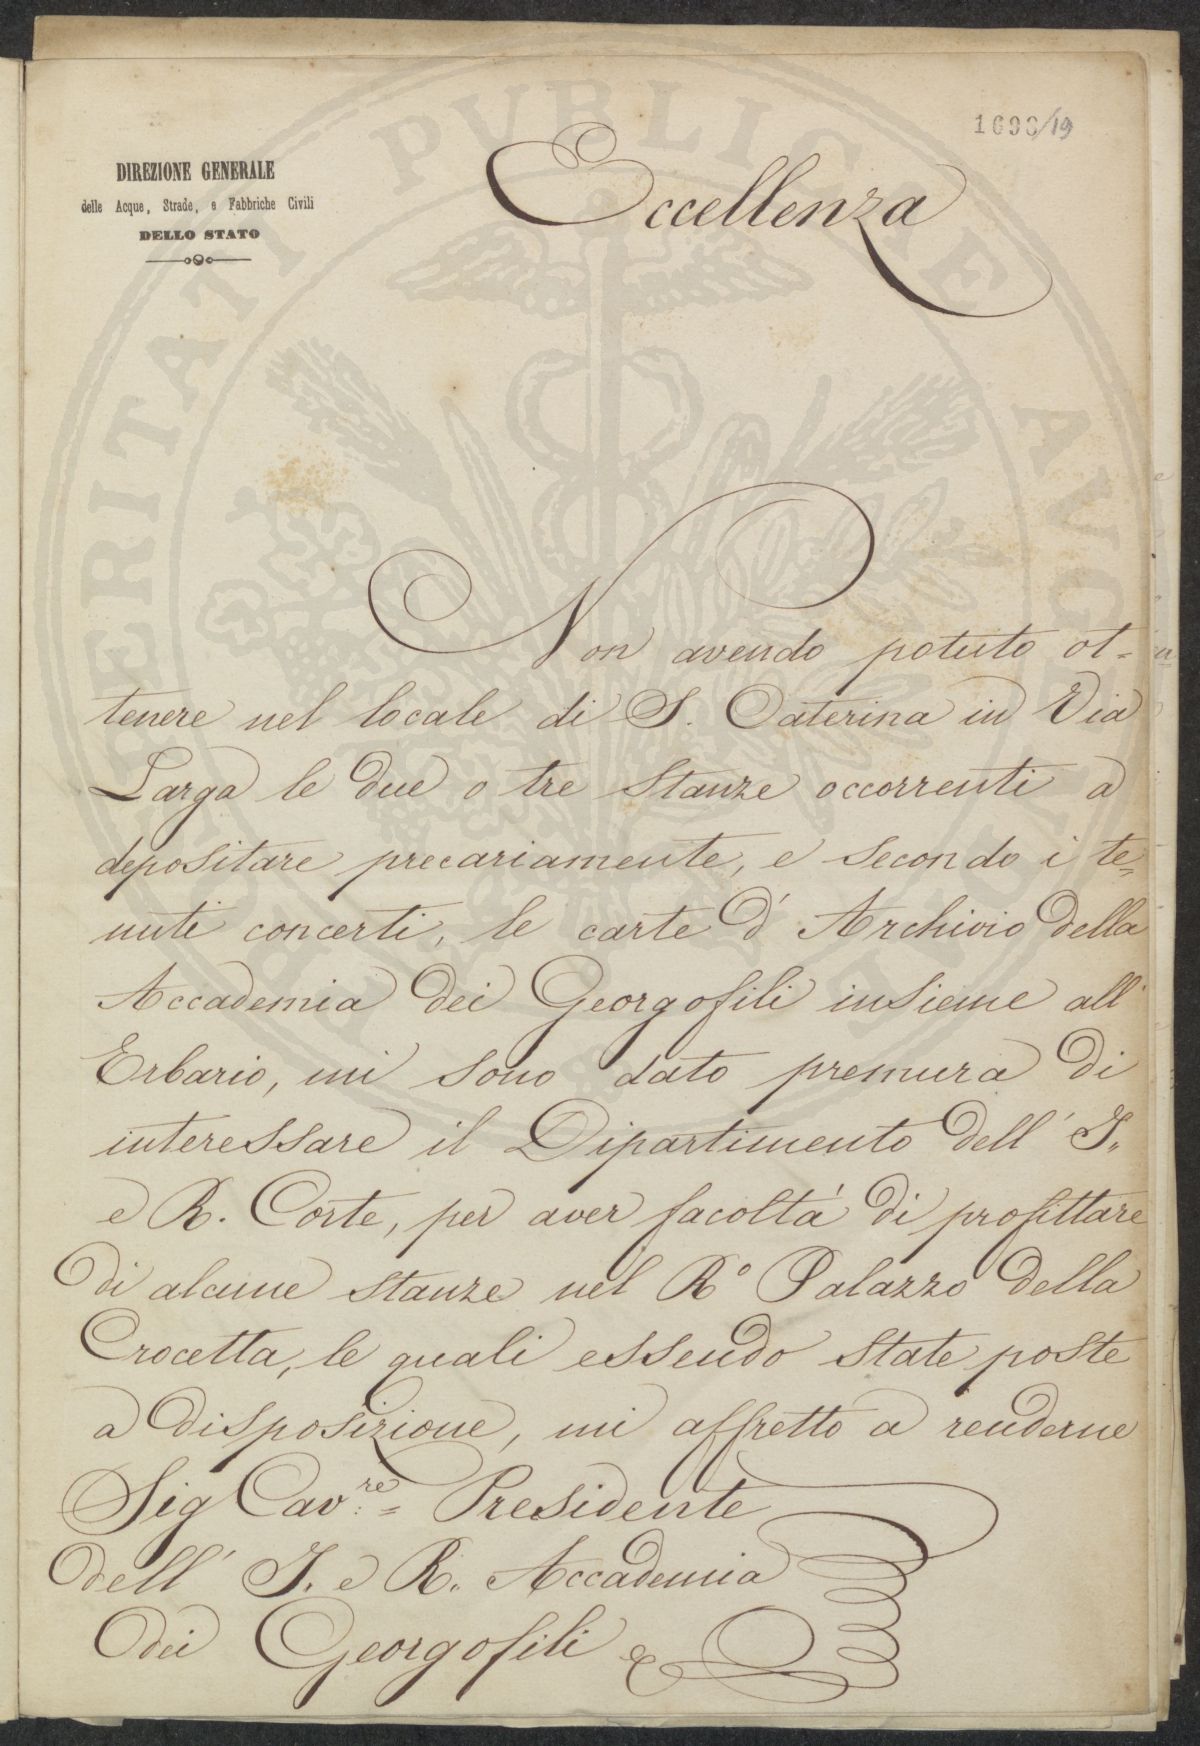 1690/19
DIREZIONE GENERALE
delle Acque, Strade, e Fabbriche Civili
DELLO STATO
Eccellenza
Non avendo potuto ot=
tenere nel locale di S. Caterina in Via
Larga le due o tre stanze occorrenti a
depositare precariamente, e secondo i te=
nuti concerti, le carte d' Archivio della
Accademia dei Georgofili insieme all'
Erbario, mi sono dato premura di
interessare il Dipartimento dell' I.
e R. Corte, per aver facoltà di profittare
di alcune stanze nel R° Palazzo della
Crocetta, le quali essendo state poste
a disposizione, mi affretto a renderne
Sig Cav.re= Presidente
dell' I. e R. Accademia
dei Georgofili
PROSPERITATI PUBLICAE AVGENDAE